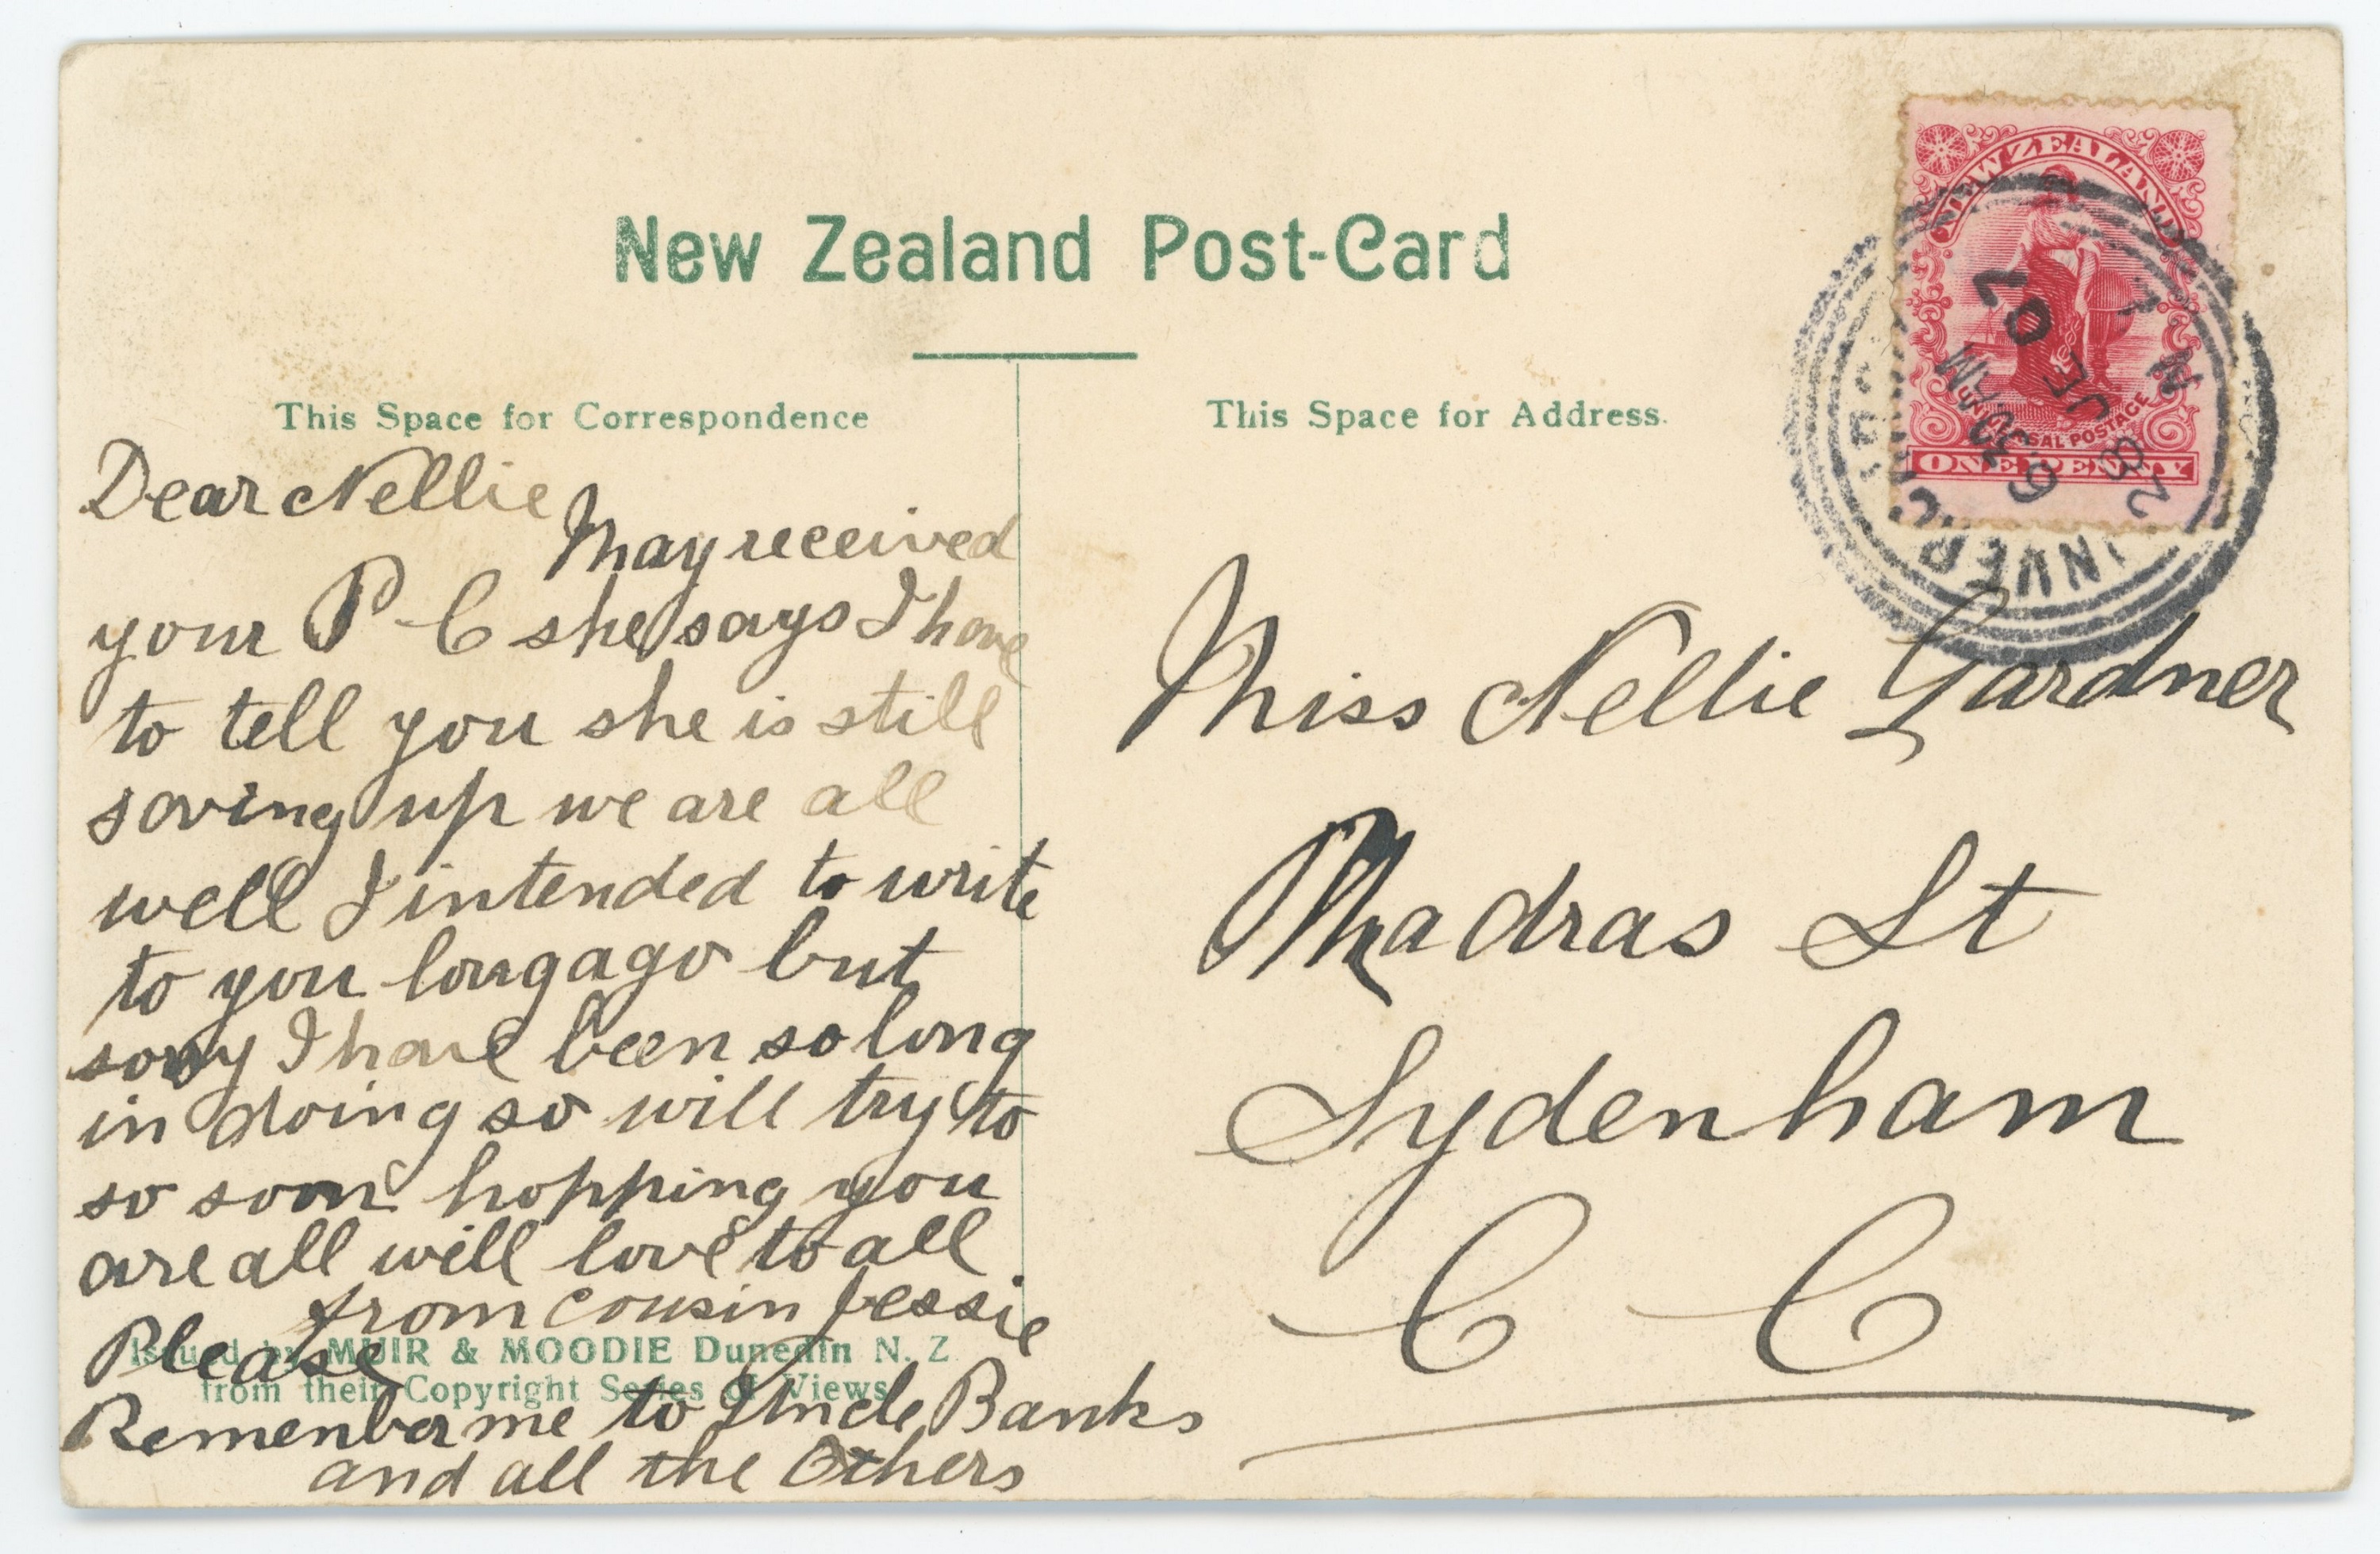 New Zealand Post-Card
This Space for Correspondence
This Space for Address.
Dear Nellie
May received
your P-C she says I have
to tell you she is still
saving up we are all
well I intended to write
to you long ago but
sorry I have been so long
in doing so will try to
so soon hopping you
are all will love to all
from cousin Jessie
Please
Remember me to Uncle Banks
and all the Others
Issued by MUIR & MOODIE Dunedin N. Z
from their Copyright Series of Views
NEW ZEALAND
UNIVERSAL POSTAGE
ONE PENNY
INVERC
N Z
28 JE 07
9 30 AM
Miss Nellie Gardner
Madras St
Sydenham
C C